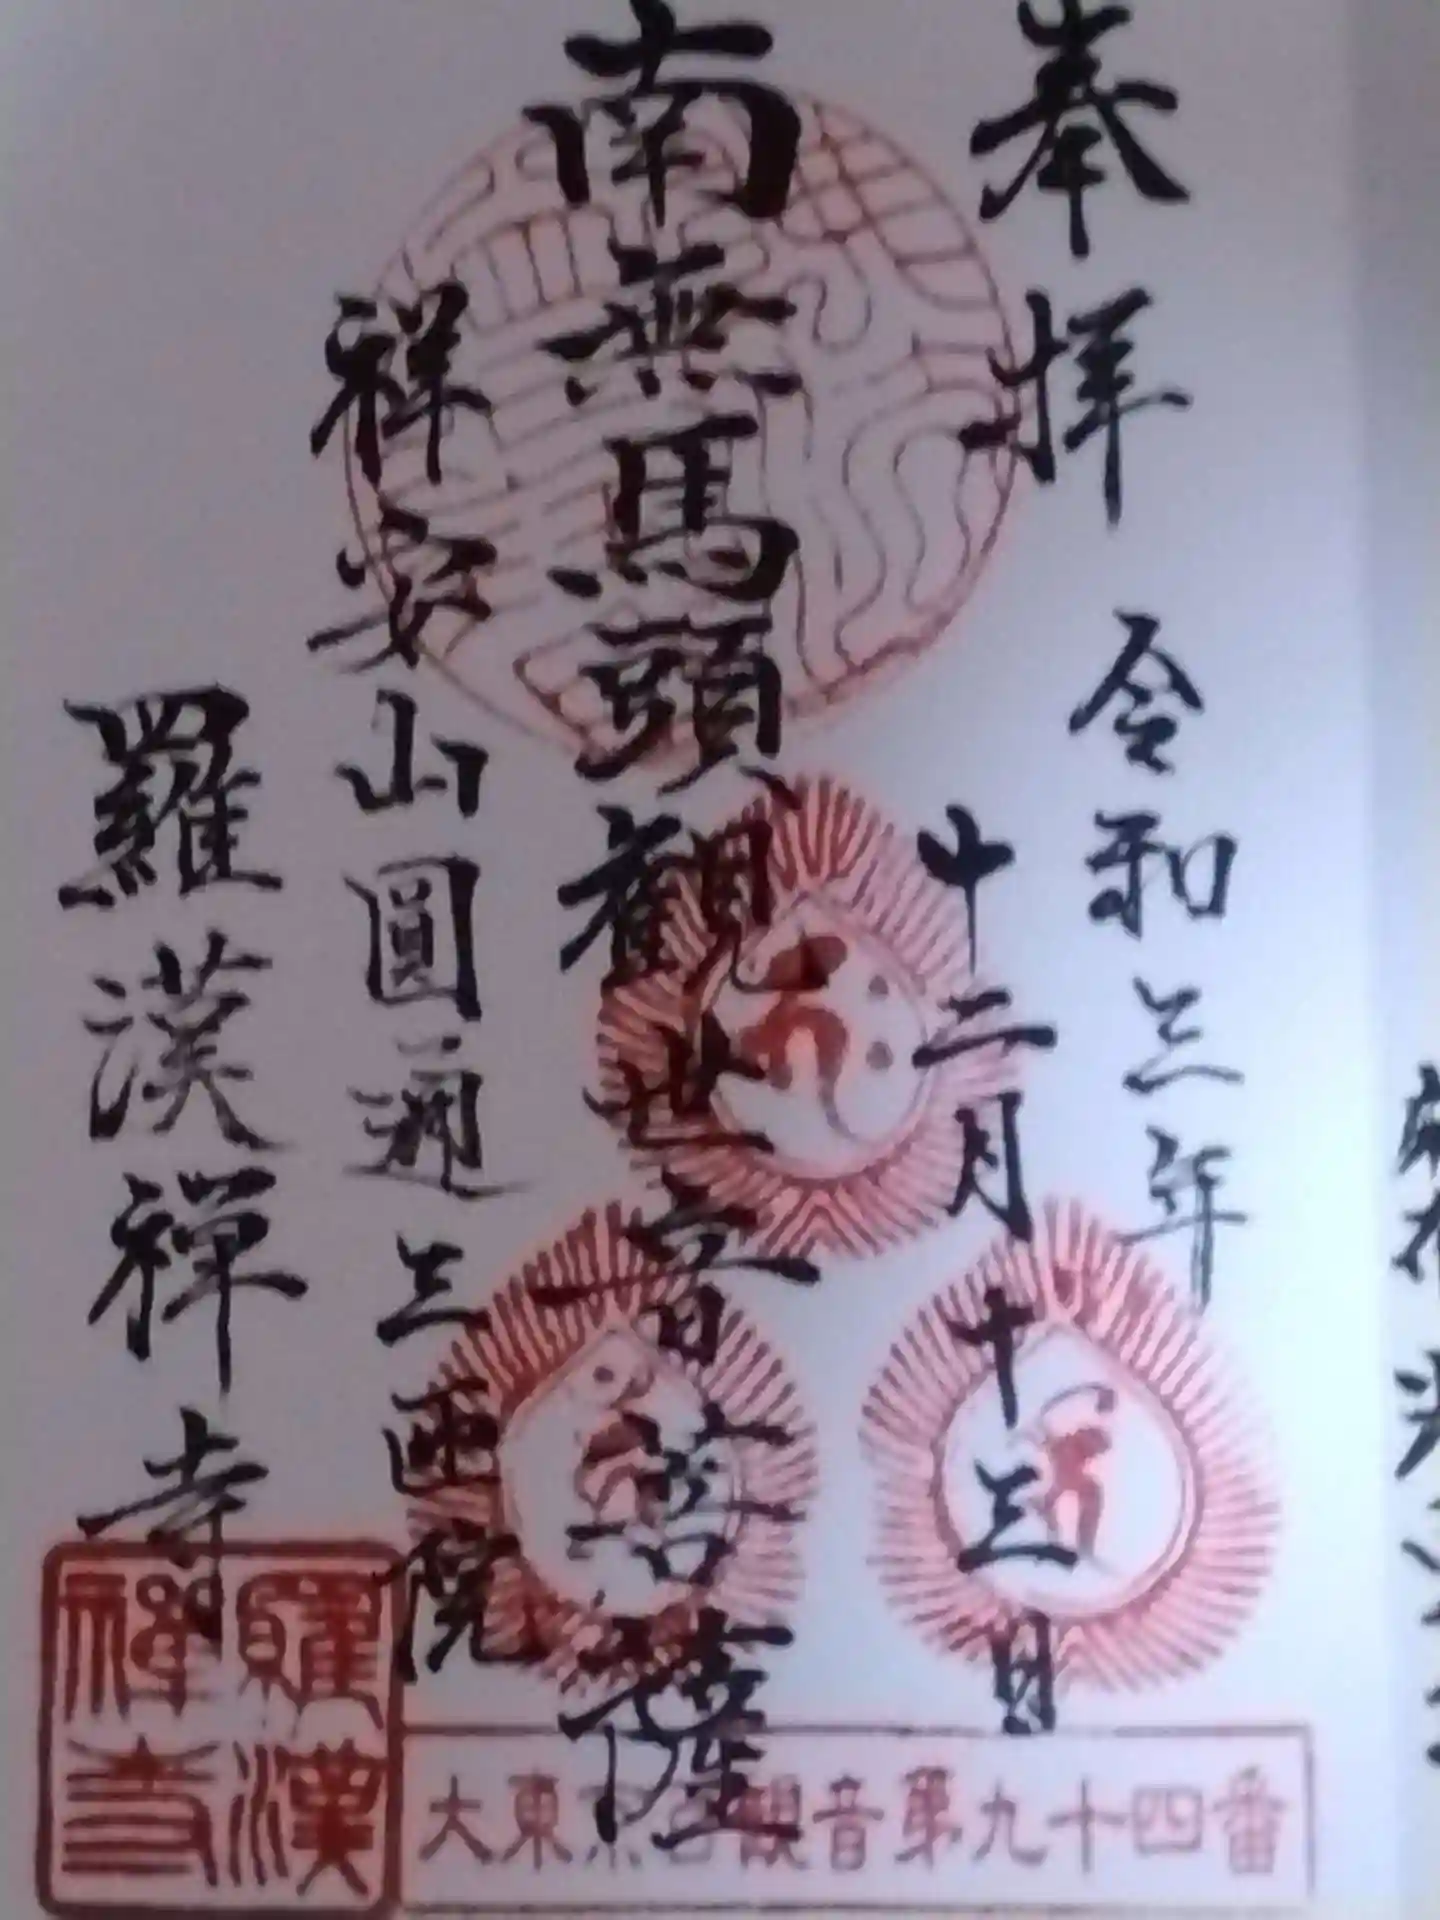 奉拝
令和三年
十二月十三日
南無馬頭觀世音菩薩
祥安山圓通三匝院
羅漢禪寺
羅漢禅寺
大東京百観音第九十四番